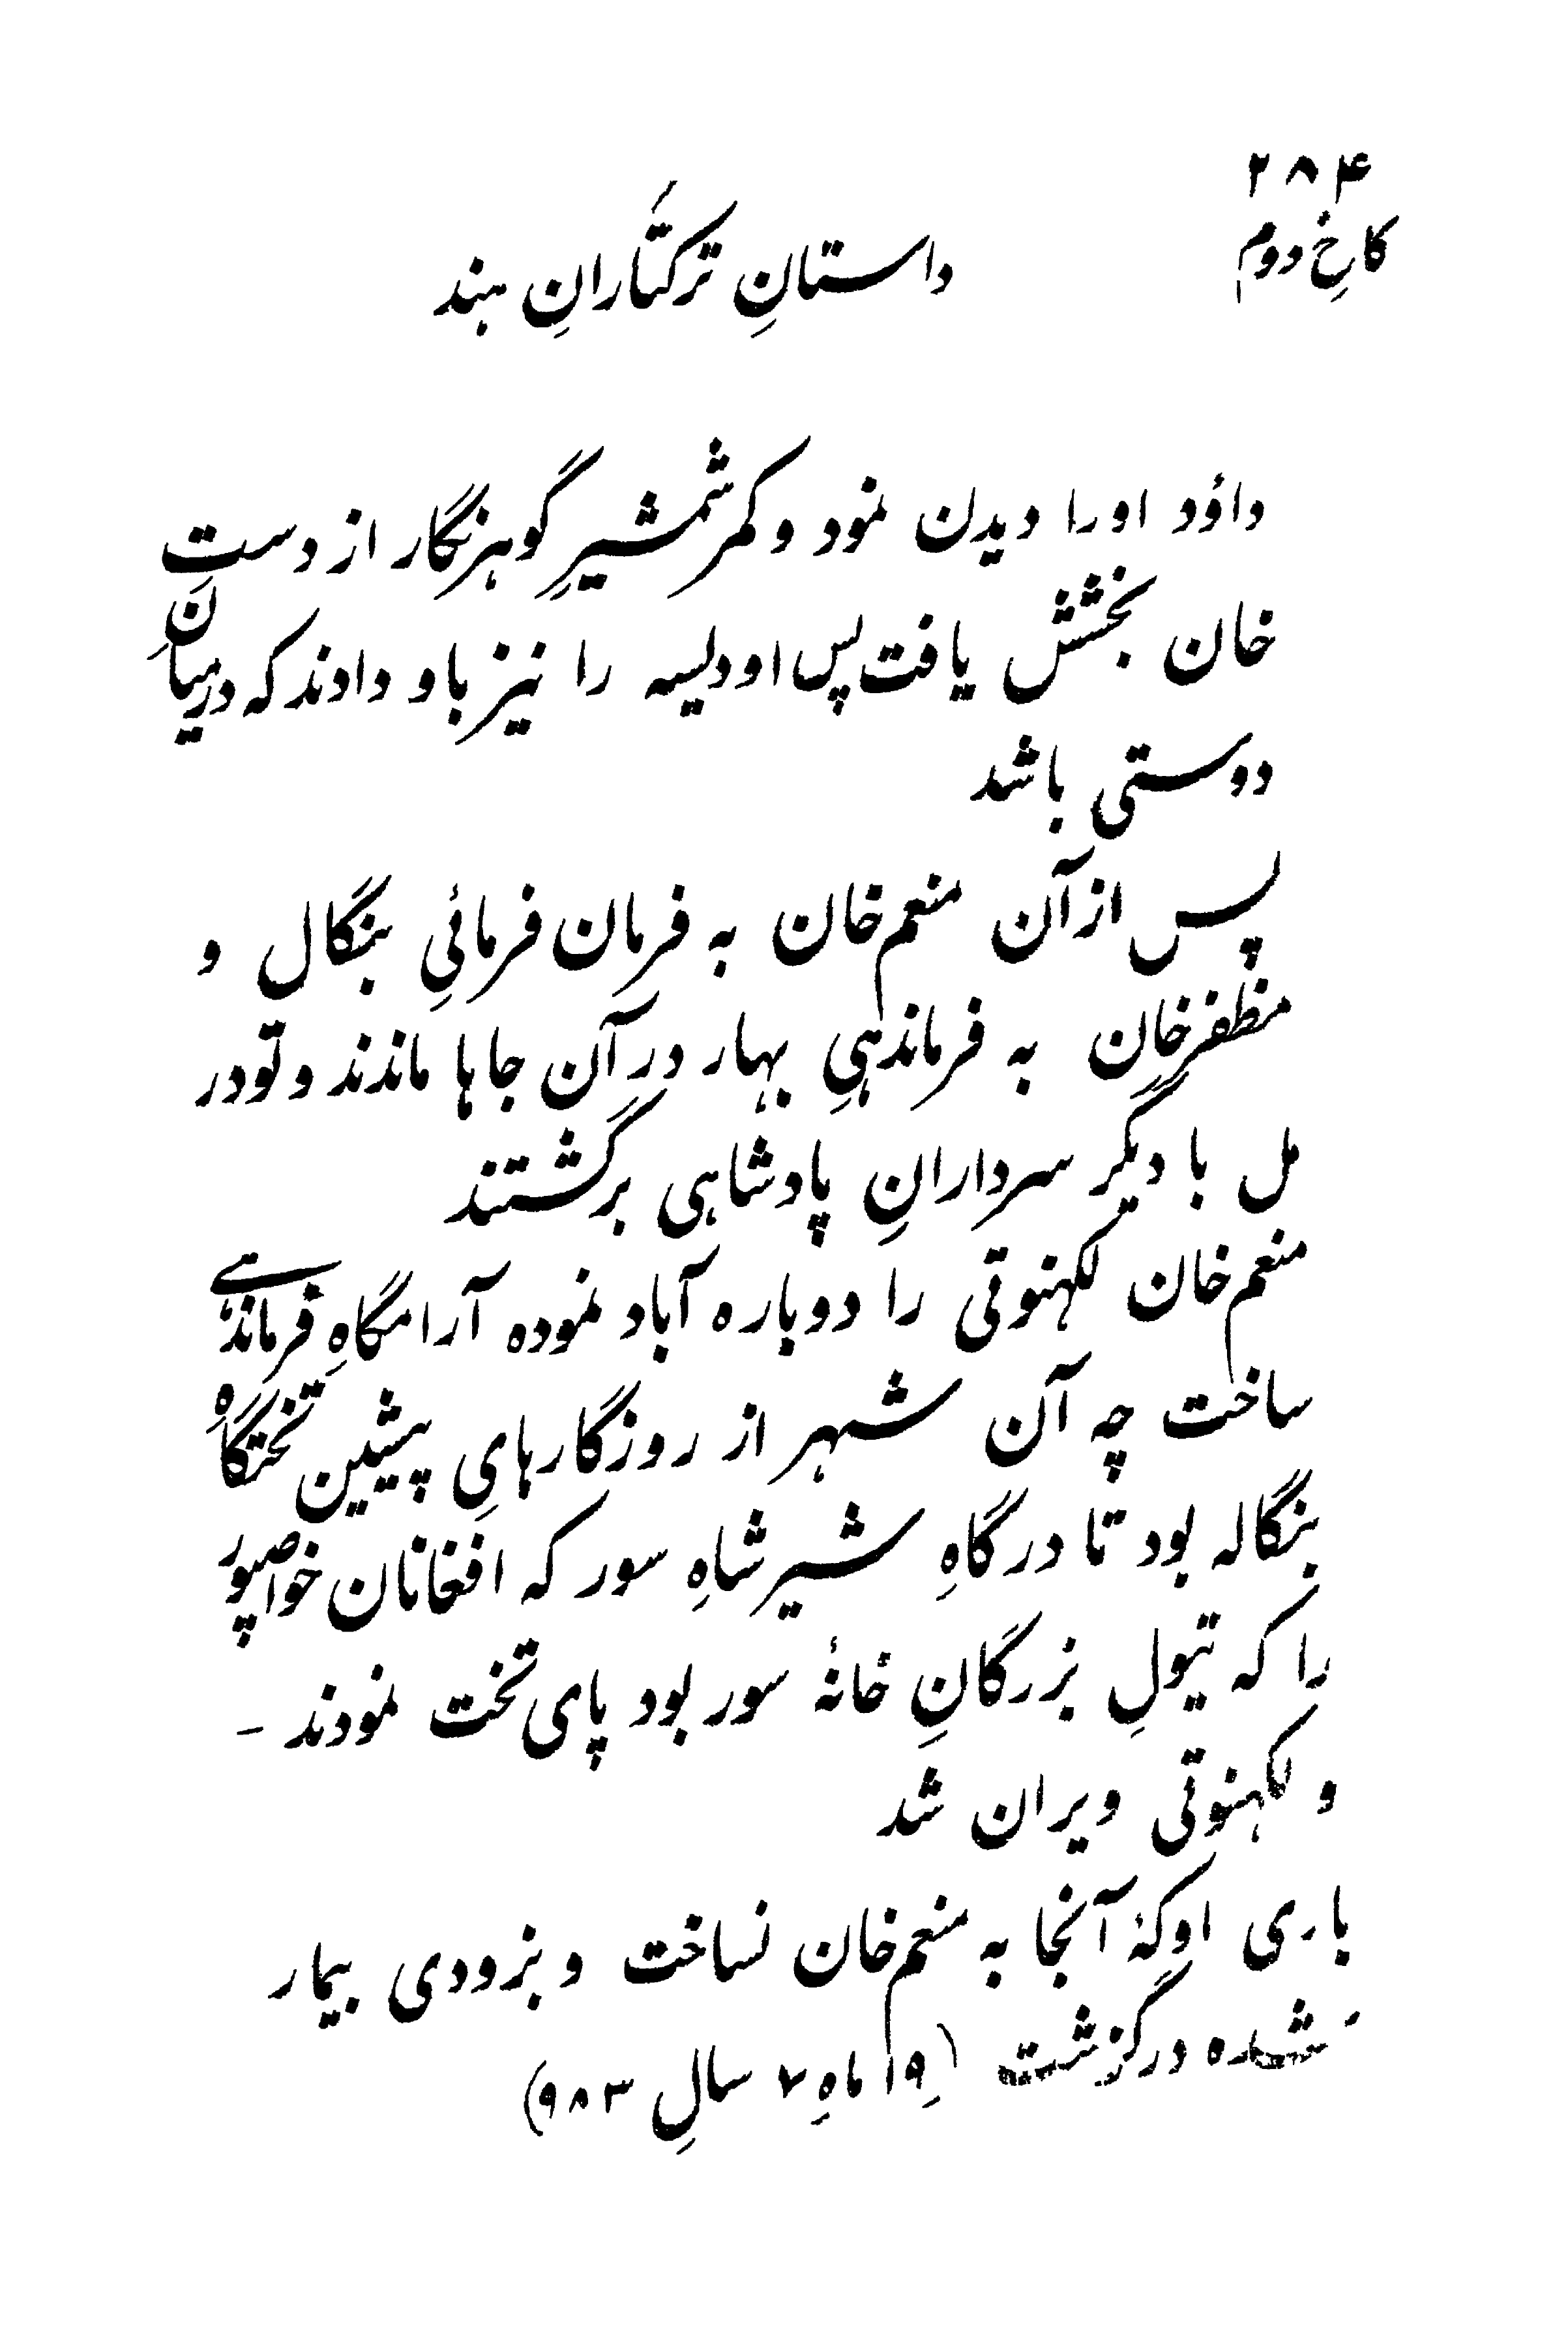 ۲۸۴
کاخِ دوم
داستانِ ترکتازانِ هند
داؤد اورا دیدن نمود و کمر شمشیرِ گوهرنگار از دستِ
خان بخشش یافت پس اودیسه را نیز باو دادند که درمیانِ
دوستی باشد
پس ازآن منعم خان به فرمان فرمائیِ بنگال و
مظفرخان به فرماندهیِ بهار درآن جاها ماندند و تودر
مل با دیگر سردارانِ پادشاهی برگشتند
منعم خان لکهنوتی را دوباره آباد نموده آرامگاهِ فرماندهی
ساخت چه آن شهر از روزگارهایِ پیشین تختگاهِ
بنگاله بود تا درگاهِ شیرشاهِ سور که افغانان خواصپور
را که تیولِ بزرگانِ خانهٔ سور بود پای تخت نمودند -
و لکهنوتی ویران شد
باری اوکهٔ آنجا به منعم خان نساخت و بزودی بیمار
شده درگزشت (۱۹ ماهِ ۷ سالِ ۹۸۳)